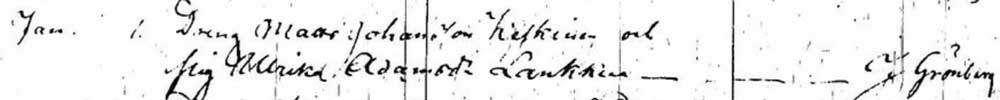 Jan. 1. Dreng Matts Johansson Kiiskinen och
Pig Ulrika Adamsdr Lankkinen — — — — J Grönberg